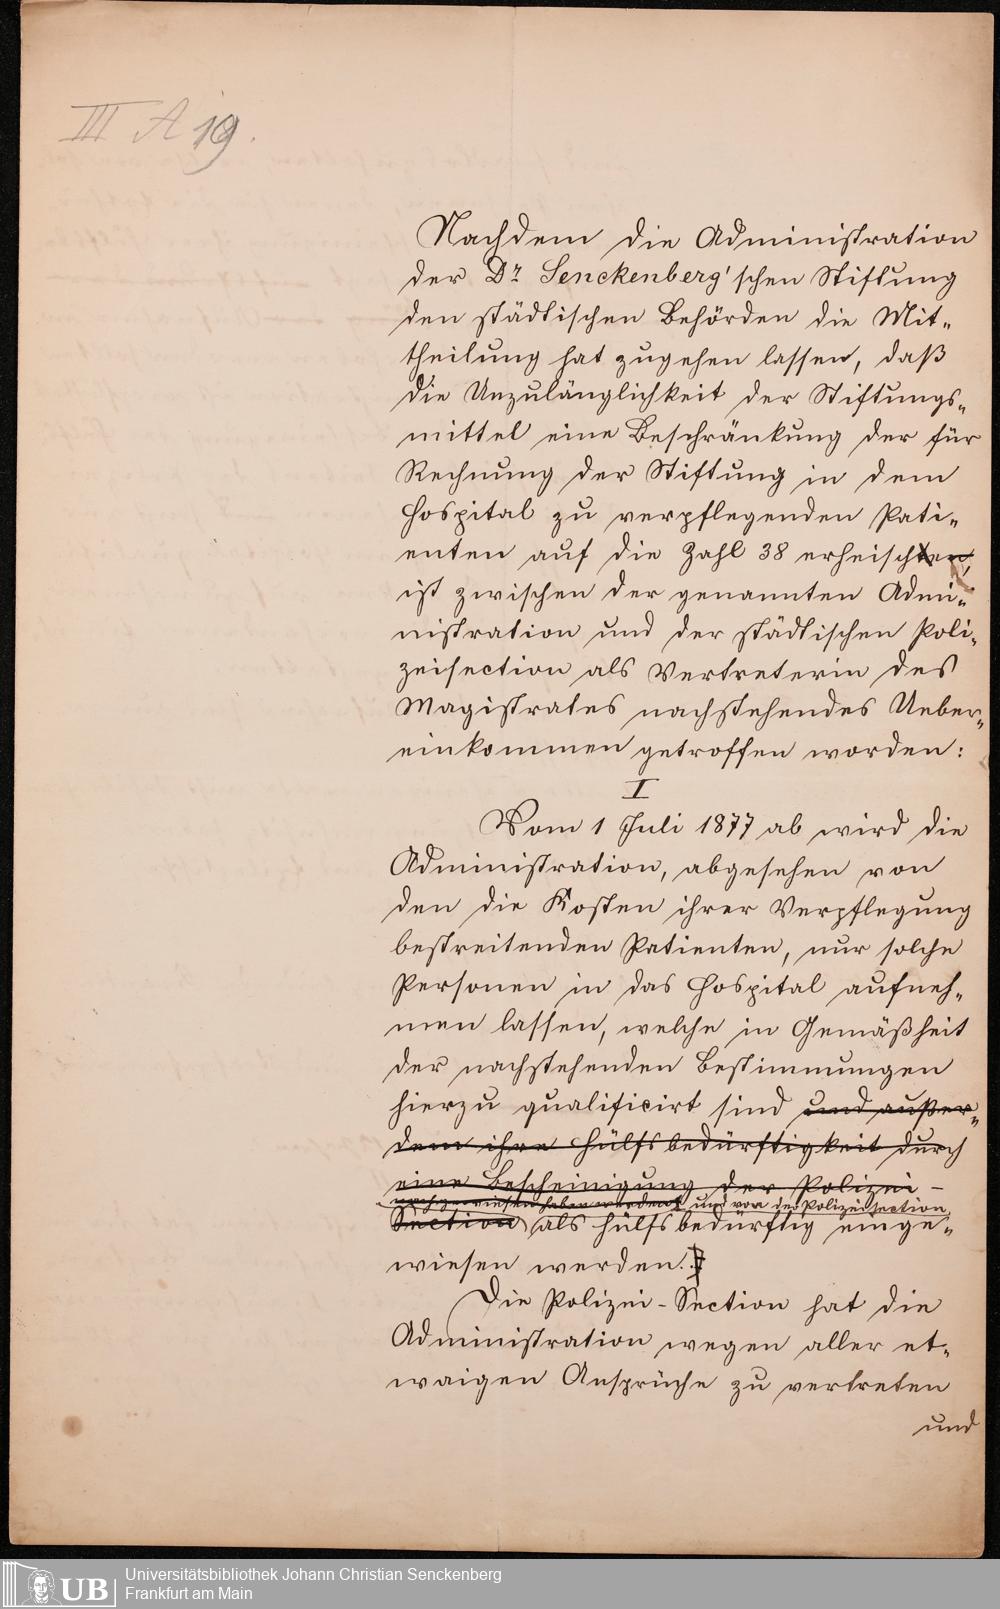 III A 19.
Nachdem die Administration
der Dr Senckenberg'schen Stiftung
den städtischen Behörden die Mit-
theilung hat zugehen lassen, daß
die Unzulänglichkeit der Stiftungs-
mittel eine Beschränkung der für
Rechnung der Stiftung in dem
Hospital zu verpflegenden Pati-
enten auf die Zahl 38 erheischten,
ist zwischen der genannten Admi-
nistration und der städtischen Poli-
zeisection als Vertreterin des
Magistrates nachstehendes Ueber-
einkommen getroffen worden:
I
Vom 1 Juli 1877 ab wird die
Administration, abgesehen von
den die Kosten ihrer Verpflegung
bestreitenden Patienten, nur solche
Personen in das Hospital aufneh-
men lassen, welche in Gemäßheit
der nachstehenden Bestimmungen
hierzu qualificirt sind und außer-
dem ihre Hülfsbedürftigkeit durch
eine Bescheinigung der Polizei-
nachgewiesen haben werden und von der Polizeisection
Section als hülfsbedürftig einge-
wiesen werden.
Die Polizei-Section hat die
Administration wegen aller et-
waigen Ansprüche zu vertreten
und
UB
Universitätsbibliothek Johann Christian Senckenberg
Frankfurt am Main